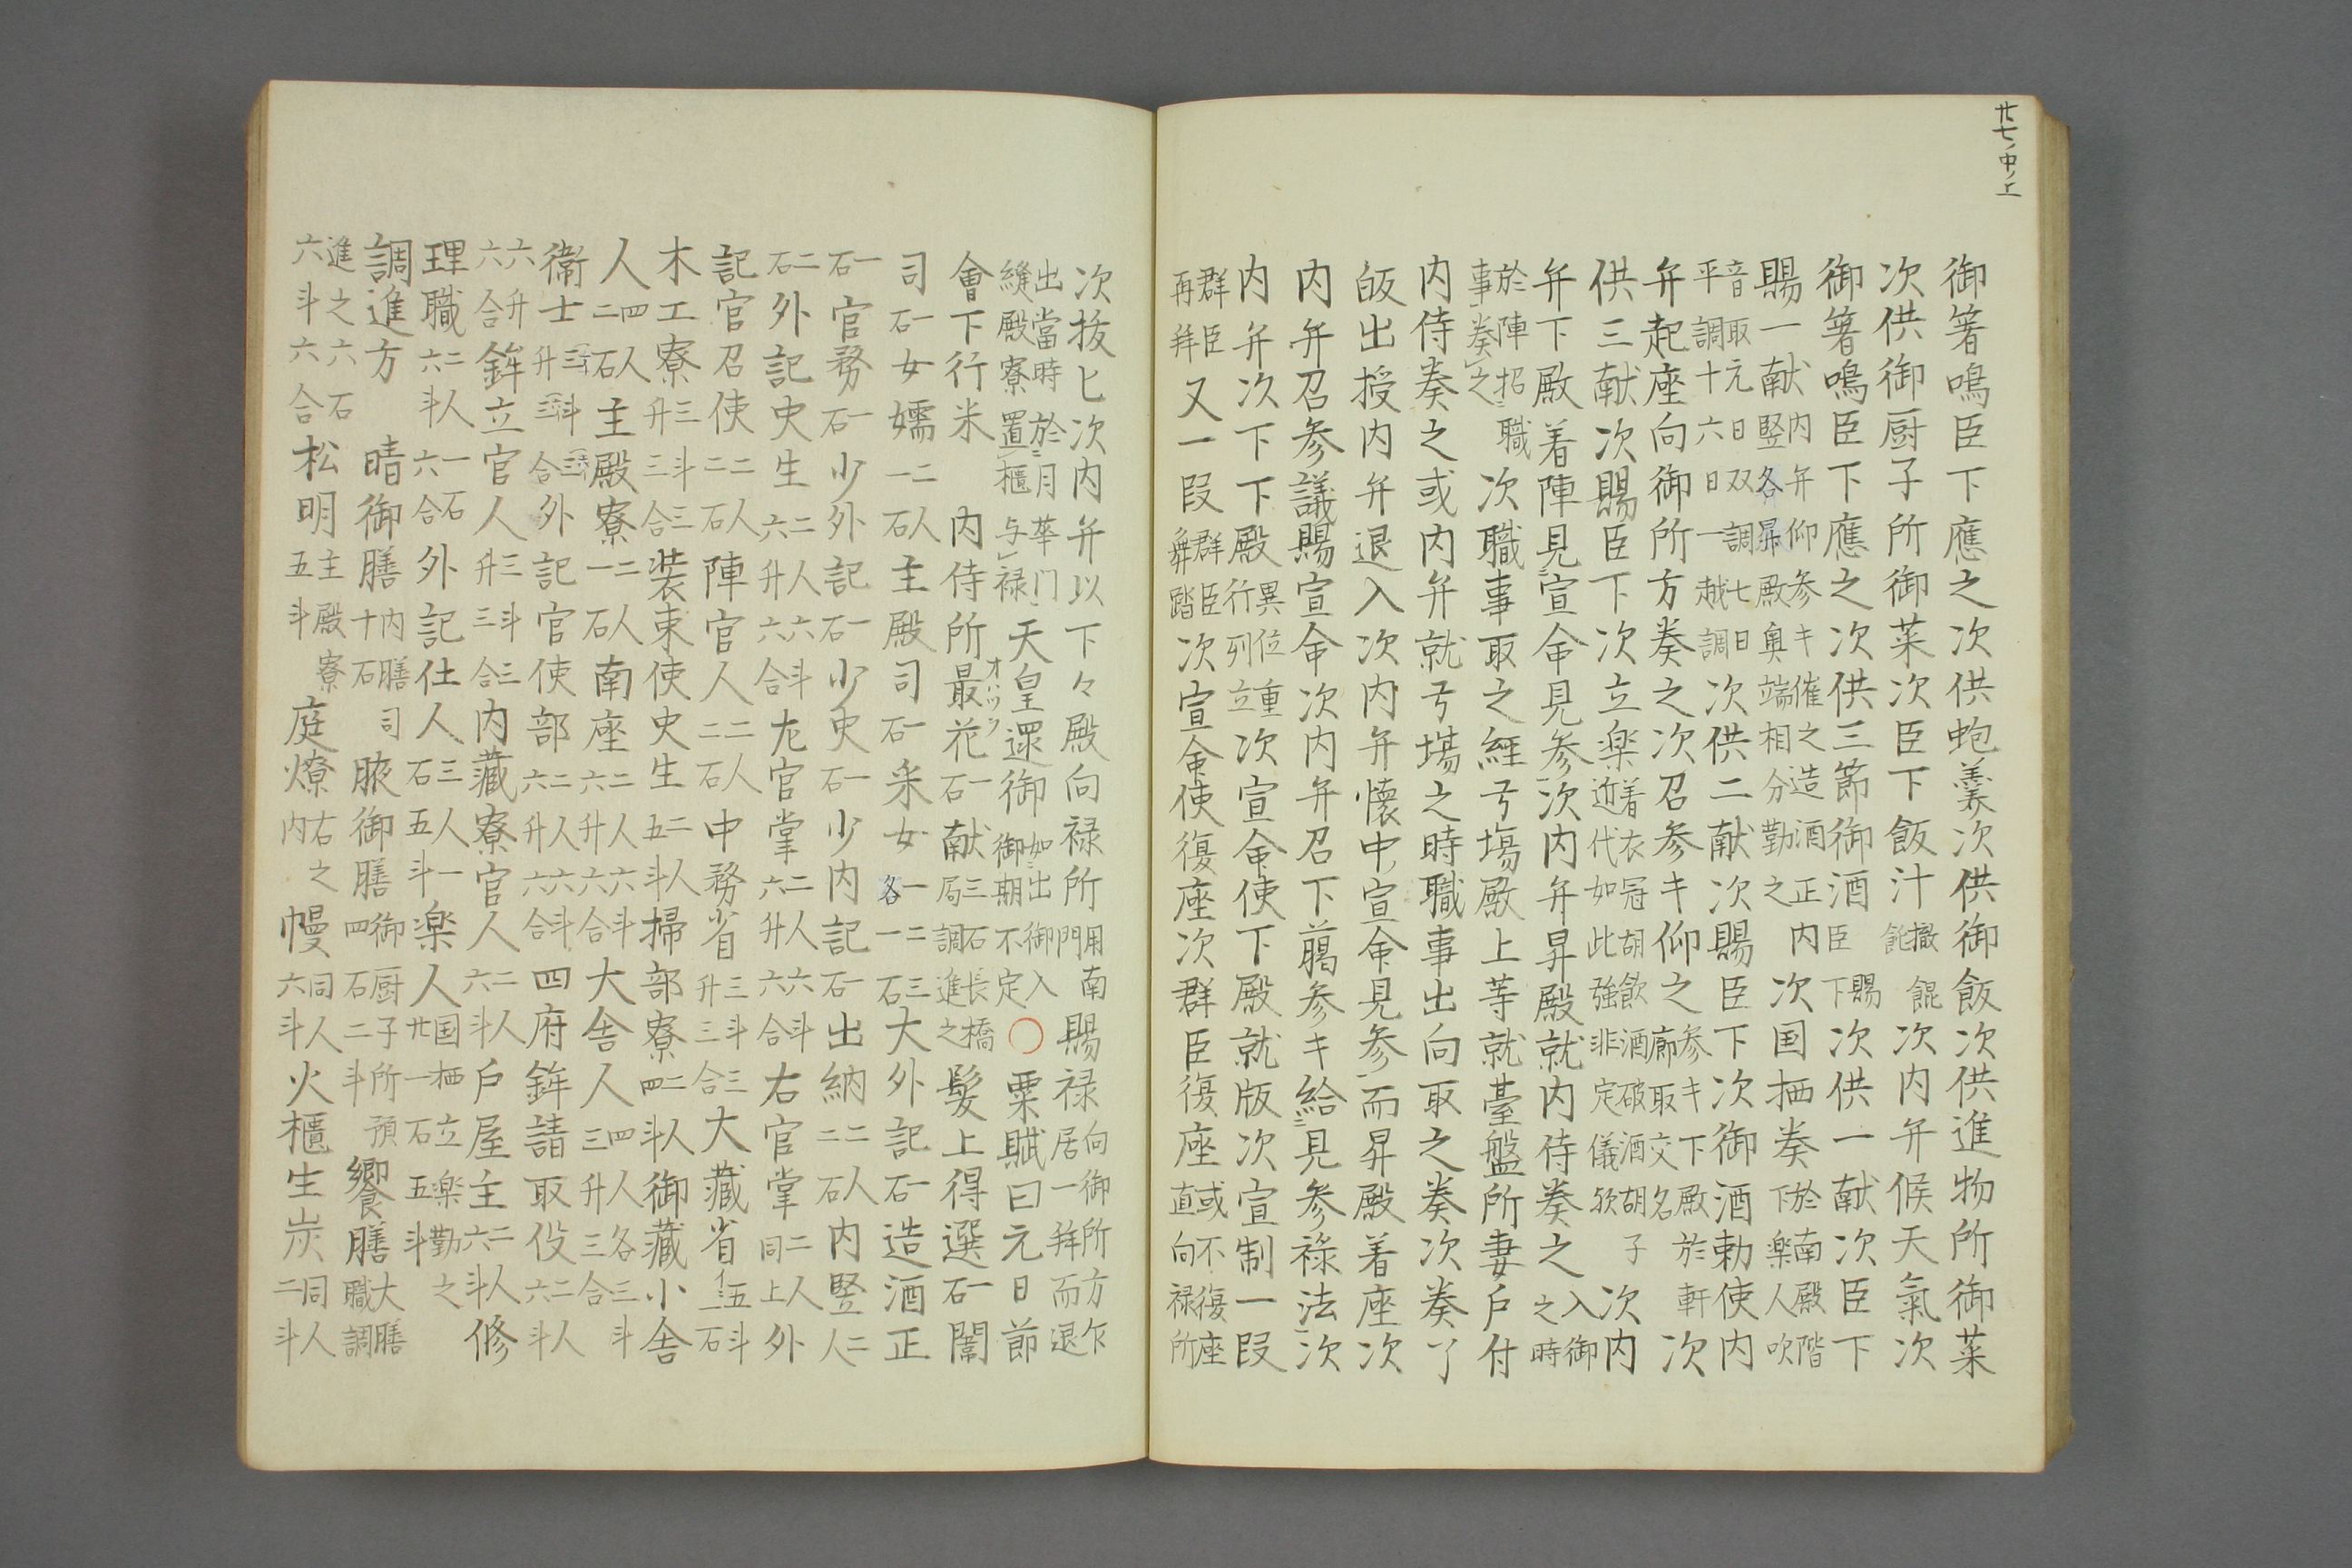 廿七ノ中ノ上
御箸鳴臣下應之次供蚫羹次供御飯次供進物所御菜
次供御厨子所御菜次臣下飯汁撤餛飩次内弁候天氣次
御箸鳴臣下應之次供三節御酒賜臣下次供一献次臣下
賜一献内弁仰参キ催之造酒正内竪各昇殿奥端相分勤之次国栖奏於南殿階下楽人吹
音取元日双調七日平調十六日一越調次供二献次賜臣下次御酒勅使内
弁起座向御所方奏之次召参キ仰之参キ下殿於軒廊取交名次
供三献次賜臣下次立楽着衣冠胡飲酒破酒胡子近代如此強非定儀欤次内
弁下殿着陣見宣命見参次内弁昇殿就内侍奏之入御之時
於陣招職事奏之次職事取之經弓場殿上等就臺盤所妻戸付
内侍奏之或内弁就弓場之時職事出向取之奏次奏了
皈出授内弁退入次内弁懐中宣命見参而昇殿着座次
内弁召参議賜宣命次内弁召下﨟参キ給見参禄法次
内弁次下下殿異位重行列立次宣命使下殿就版次宣制一段
群臣再拜又一段群臣舞踏次宣命使復座次群臣復座或不復座直向禄所
次抜匕次内弁以下々殿向禄所用南門賜禄向御所方居一拜而退乍
出當時於月華門縫殿寮置櫃与禄天皇還御如出御入御期不定〇粟賦曰元日節
會下行米 内侍所最花オハツヲ一石献三石長橋局調進之髪上得選一石闈
司一石女嬬二人一石主殿司一石采女一二三各一石大外記一石造酒正
一石官務一石少外記一石少史一石少内記一石出納二人二石内竪二人
二石外記史生二人六斗六升六合左官掌二人六斗六升六合右官掌二人同上外
記官召使二人二石陣官人二人二石中務省三斗三升三合大藏省五斗イニ一石
木工寮三斗三升三合装束使史生二人五斗掃部寮二人四斗御藏小舎
人四人二石主殿寮二人一石南座二人六斗六升六合大舎人四人各三斗三升三合
衞士三斗三升三合外記官使部二人六斗六升六合四府鉾請取役二人六斗
六升六合鉾立官人三斗三升三合内藏寮官人二人六斗戸屋主二人六斗修
理職二人六斗一石六合外記仕人三人一石五斗楽人国栖立楽勤之廿一石五斗
調進方 晴御膳内膳司十石腋御膳御厨子所預四石二斗饗膳大膳職調
進之六石六斗六合松明主殿寮五斗庭燎右之内幔同人六斗火櫃生炭同人二斗